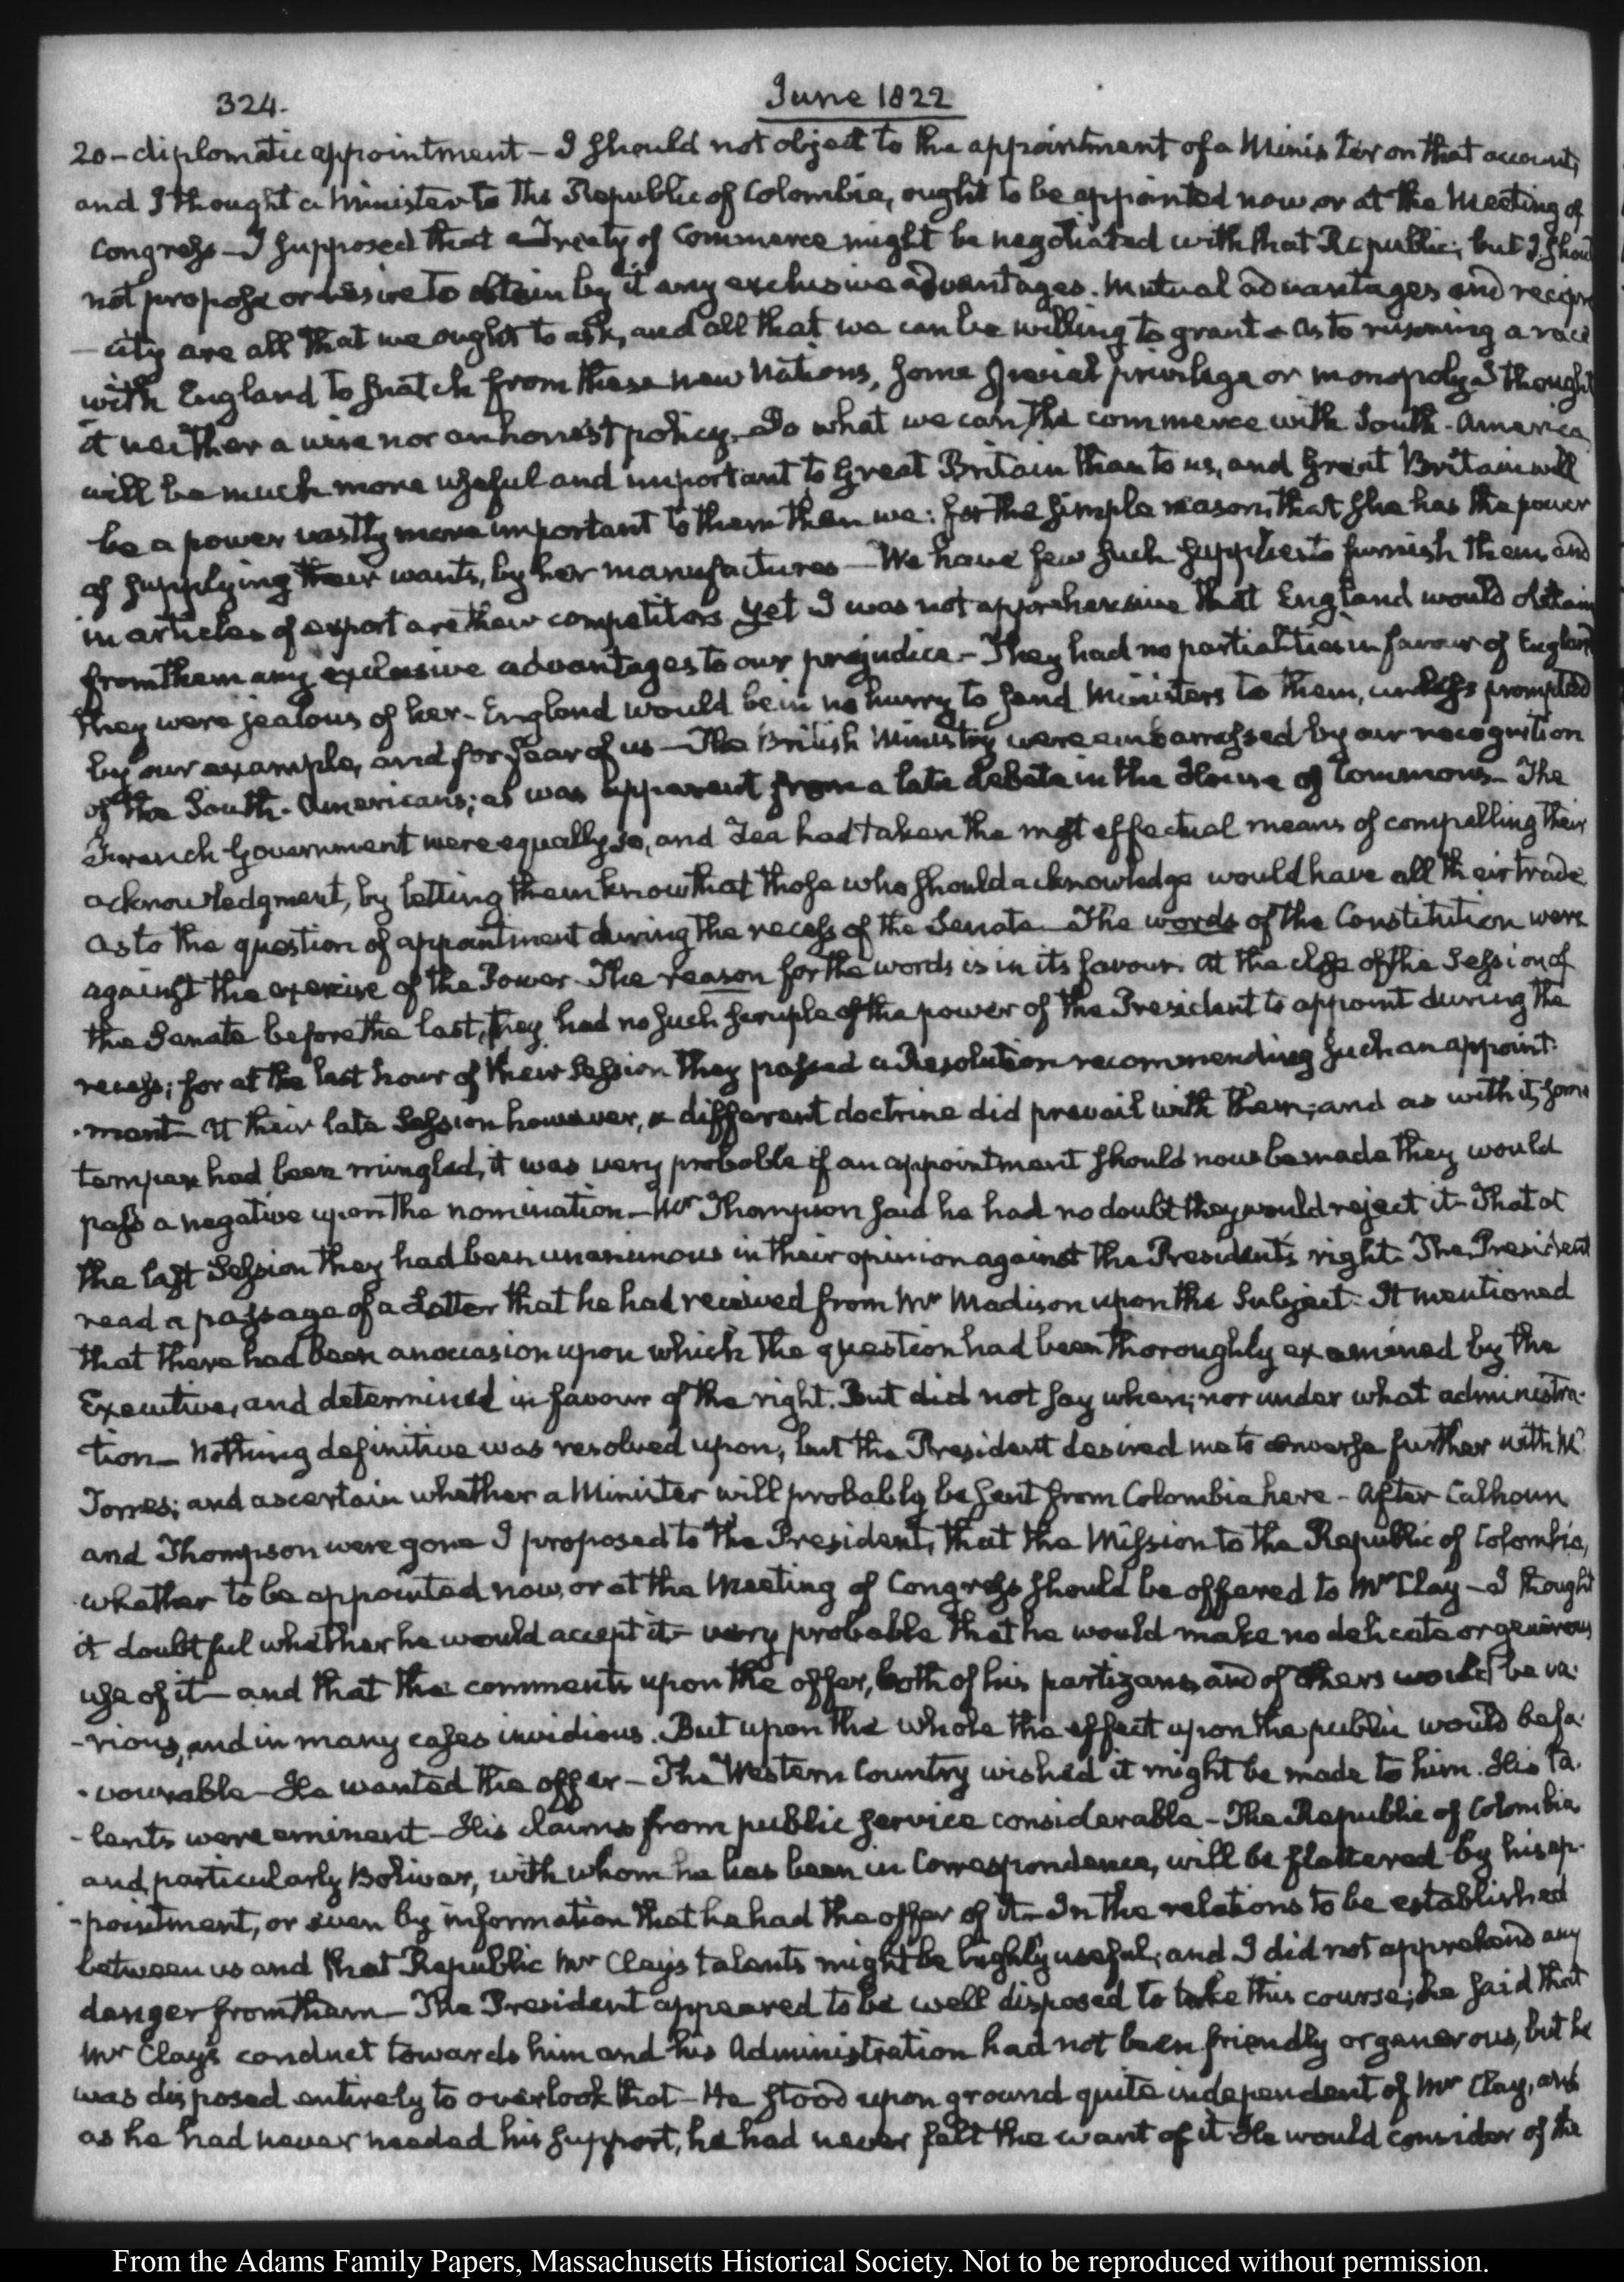 324.
June 1822
20 - diplomatic appointment - I should not object to the appointment of a Minister on that account,
and I thought a Minister to the Republic of Colombia, ought to be appointed now or at the Meeting of
Congress - I supposed that a Treaty of Commerce might be negotiated with that Republic; but I shou
not propose or desire to obtain by it any exclusive advantages. Mutual advantages and recipro
-city are all that we ought to ask, and all that we can be willing to grant - As to running a race
with England to snatch from these new Nations, some special privilege or monopoly I thought
it neither a wise nor an honest policy. Do what we can the commerce with South-America
will be much more useful and important to Great Britain than to us, and Great Britain will
be a power vastly more important to them than we: for the simple reason, that she has the power
of supplying their wants, by her manufactures - We have few such supplies to furnish them and
in articles of export are their competitors. Yet I was not apprehensive that England would obtain
from them any exclusive advantages to our prejudice - They had no partialities in favour of England
They were jealous of her - England would be in no hurry to send Ministers to them, unless prompted
by our example, and for fear of us - The British Ministry were embarrassed by our recognition
of the South-Americans; as was apparent from a late debate in the House of Commons - The
French Government were equally so, and Zea had taken the most effectual means of compelling their
acknowledgment, by letting them know that those who should acknowledge would have all their trade
As to the question of appointment during the recess of the Senate - The words of the Constitution were
against the exercise of the Power - The reason for the words is in its favour. At the close of the Session of
the Senate before the last, they had no such scruple of the power of the President to appoint during the
recess; for at the last hour of their Session they passed a Resolution recommending such an appoint-
-ment - At their late Session however, a different doctrine did prevail with them; and as with it, some
temper had been mingled, it was very probable if an appointment should now be made they would
pass a negative upon the nomination - Mr Thompson said he had no doubt they would reject it - That at
the last Session they had been unanimous in their opinion against the President's right. The President
read a passage of a Letter that he had received from Mr Madison upon the Subject. It mentioned
that there had been an occasion upon which the question had been thoroughly examined by the
Executive, and determined in favour of the right. But did not say when; nor under what administra-
-tion - Nothing definitive was resolved upon, but the President desired me to converse further with Mr
Torres; and ascertain whether a Minister will probably be sent from Colombia here - After Calhoun
and Thompson were gone I proposed to the President, that the Mission to the Republic of Colombia,
whether to be appointed now, or at the Meeting of Congress should be offered to Mr Clay - I thought
it doubtful whether he would accept it - very probable that he would make no delicate or generous
use of it - and that the comments upon the offer, both of his partizans and of others would be va-
-rious, and in many cases invidious. But upon the whole the effect upon the public would be fa-
-vourable - He wanted the offer - The Western Country wished it might be made to him. His ta-
-lents were eminent - His claims from public service considerable - The Republic of Colombia
and particularly Bolivar, with whom he has been in Correspondence, will be flattered by his ap-
-pointment, or even by information that he had the offer of it - In the relations to be established
between us and that Republic Mr Clay's talents might be highly useful; and I did not apprehend any
danger from them - The President appeared to be well disposed to take this course; he said that
Mr Clay's conduct towards him and his Administration had not been friendly or generous, but he
was disposed entirely to overlook that - He stood upon ground quite independent of Mr Clay, and
as he had never needed his support, he had never felt the want of it. He would consider of the
From the Adams Family Papers, Massachusetts Historical Society. Not to be reproduced without permission.